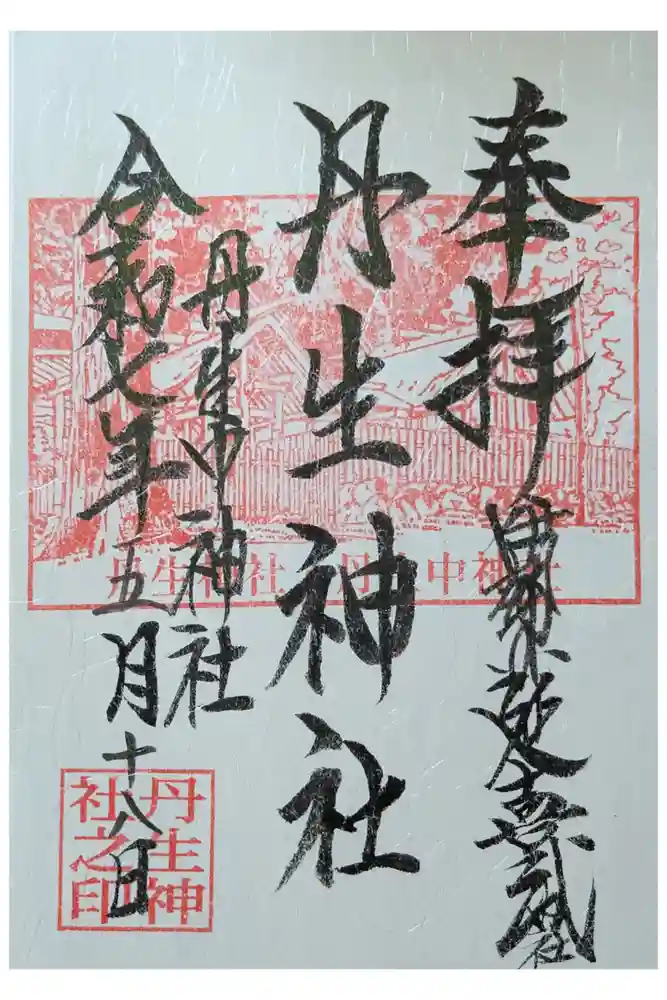 奉拝 延喜式社
丹生神社
丹生中神社
令和七年五月十八日
丹生神社 丹生中神社
丹生神
社之印